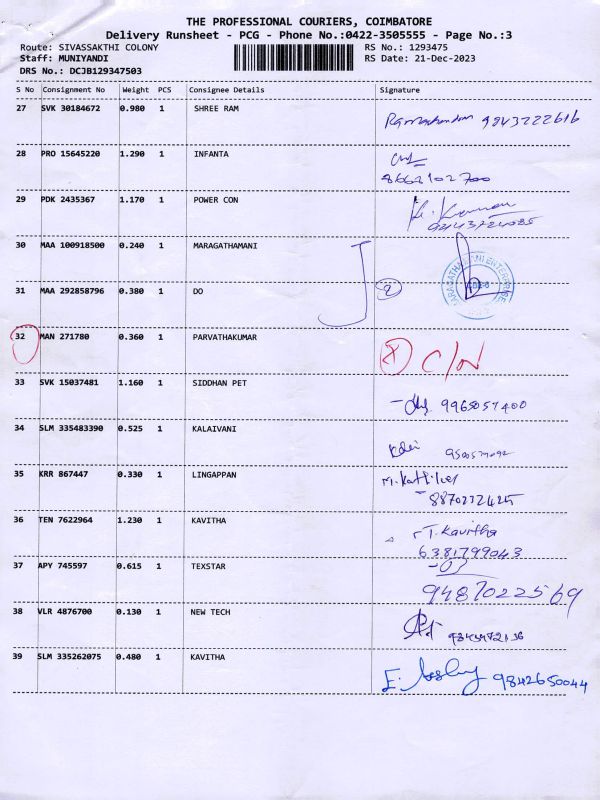 THE PROFESSIONAL COURIERS, COIMBATORE
Delivery Runsheet - PCG - Phone No.:0422-3505555 - Page No.:3
Route: SIVASSAKTHI COLONY RS No.: 1293475
Staff: MUNIYANDI RS Date: 21-Dec-2023
DRS No.: DCJB129347503
S No Consignment No Weight PCS Consignee Details Signature
27 SVK 30184672 0.980 1 SHREE RAM
9843222616
28 PRO 15645220 1.290 1 INFANTA
8662102700
29 PDK 2435367 1.170 1 POWER CON
30 MAA 100918500 0.240 1 MARAGATHAMANI
31 MAA 292858796 0.380 1 DO
32 MAN 271780 0.360 1 PARVATHAKUMAR
C/N
33 SVK 15037481 1.160 1 SIDDHAN PET
9965057400
34 SLM 335483390 0.525 1 KALAIVANI
35 KRR 867447 0.330 1 LINGAPPAN
8870232425
36 TEN 7622964 1.230 1 KAVITHA
T. Kavitha
6381799043
37 APY 745597 0.615 1 TEXSTAR
9487022569
38 VLR 4876700 0.130 1 NEW TECH
39 SLM 335262075 0.480 1 KAVITHA
9842650044